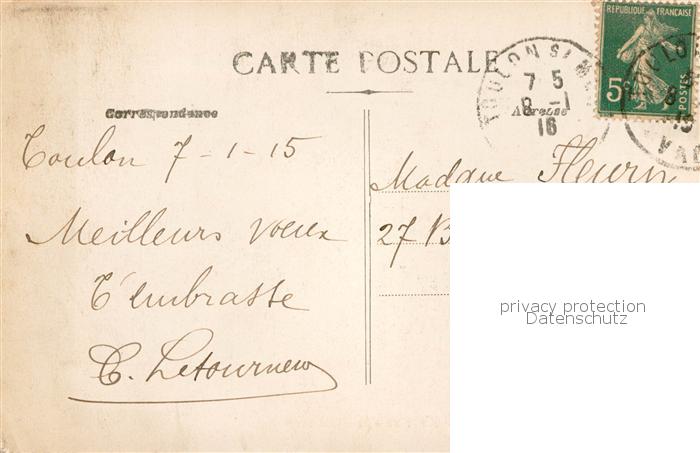 CARTE POSTALE
Correspondance
Adresse
TOULON
7 5
8 -1
16
REPUBLIQUE FRANCAISE
5c
POSTES
Toulon 7-1-15
Meilleurs voeux
T'embrasse
Letourneu
Madame Fleury
27 B
privacy protection
Datenschutz